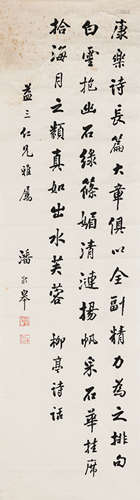 康樂詩長篇大章俱以全副精力為之排句
白雲抱幽石綠篠媚清漣揚帆采石華挂席
拾海月之類真如出水芙蓉 柳亭詩話
益三仁兄雅屬
潘齡皋